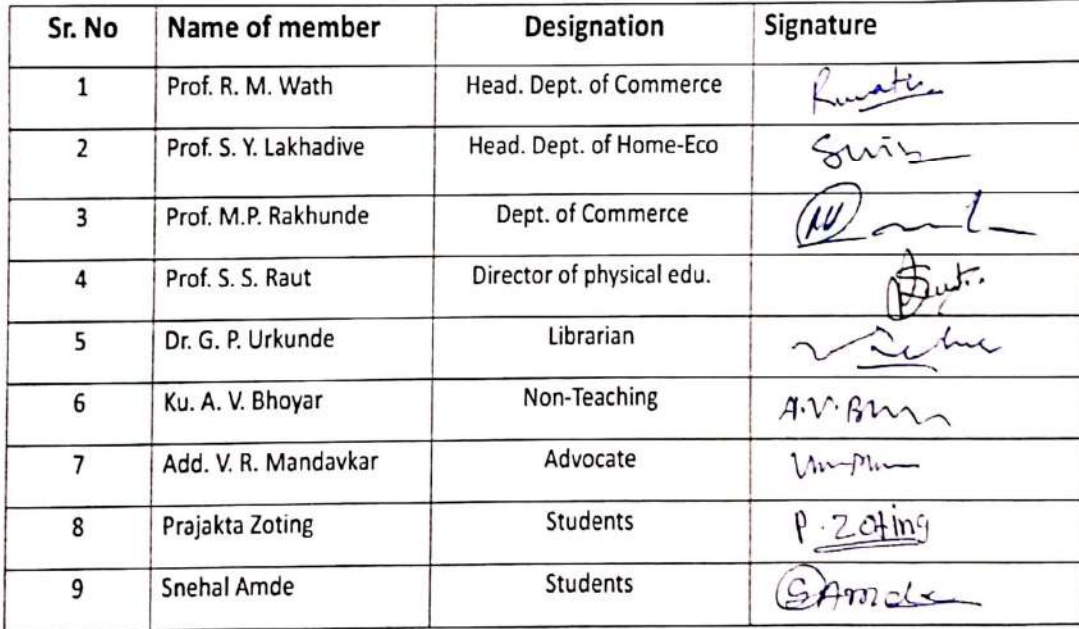 Sr. No Name of member Designation Signature
1 Prof. R. M. Wath Head. Dept. of Commerce
2 Prof. S. Y. Lakhadive Head. Dept. of Home-Eco
3 Prof. M.P. Rakhunde Dept. of Commerce
4 Prof. S. S. Raut Director of physical edu.
5 Dr. G. P. Urkunde Librarian
6 Ku. A. V. Bhoyar Non-Teaching A.V.
7 Add. V. R. Mandavkar Advocate
8 Prajakta Zoting Students P. Zoting
9 Snehal Amde Students